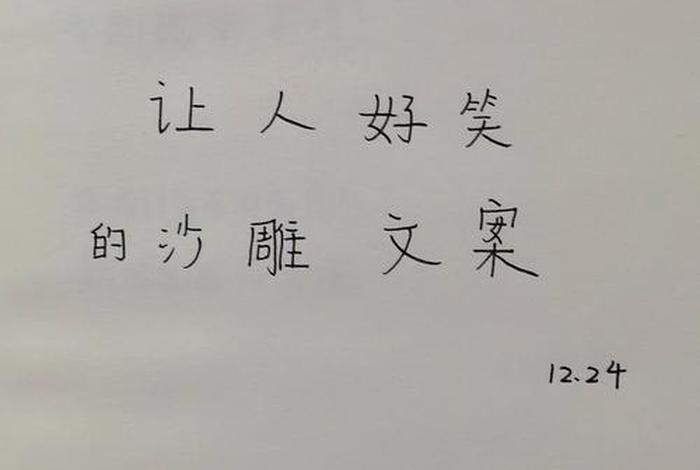 让人好笑
的沙雕文案
12.24